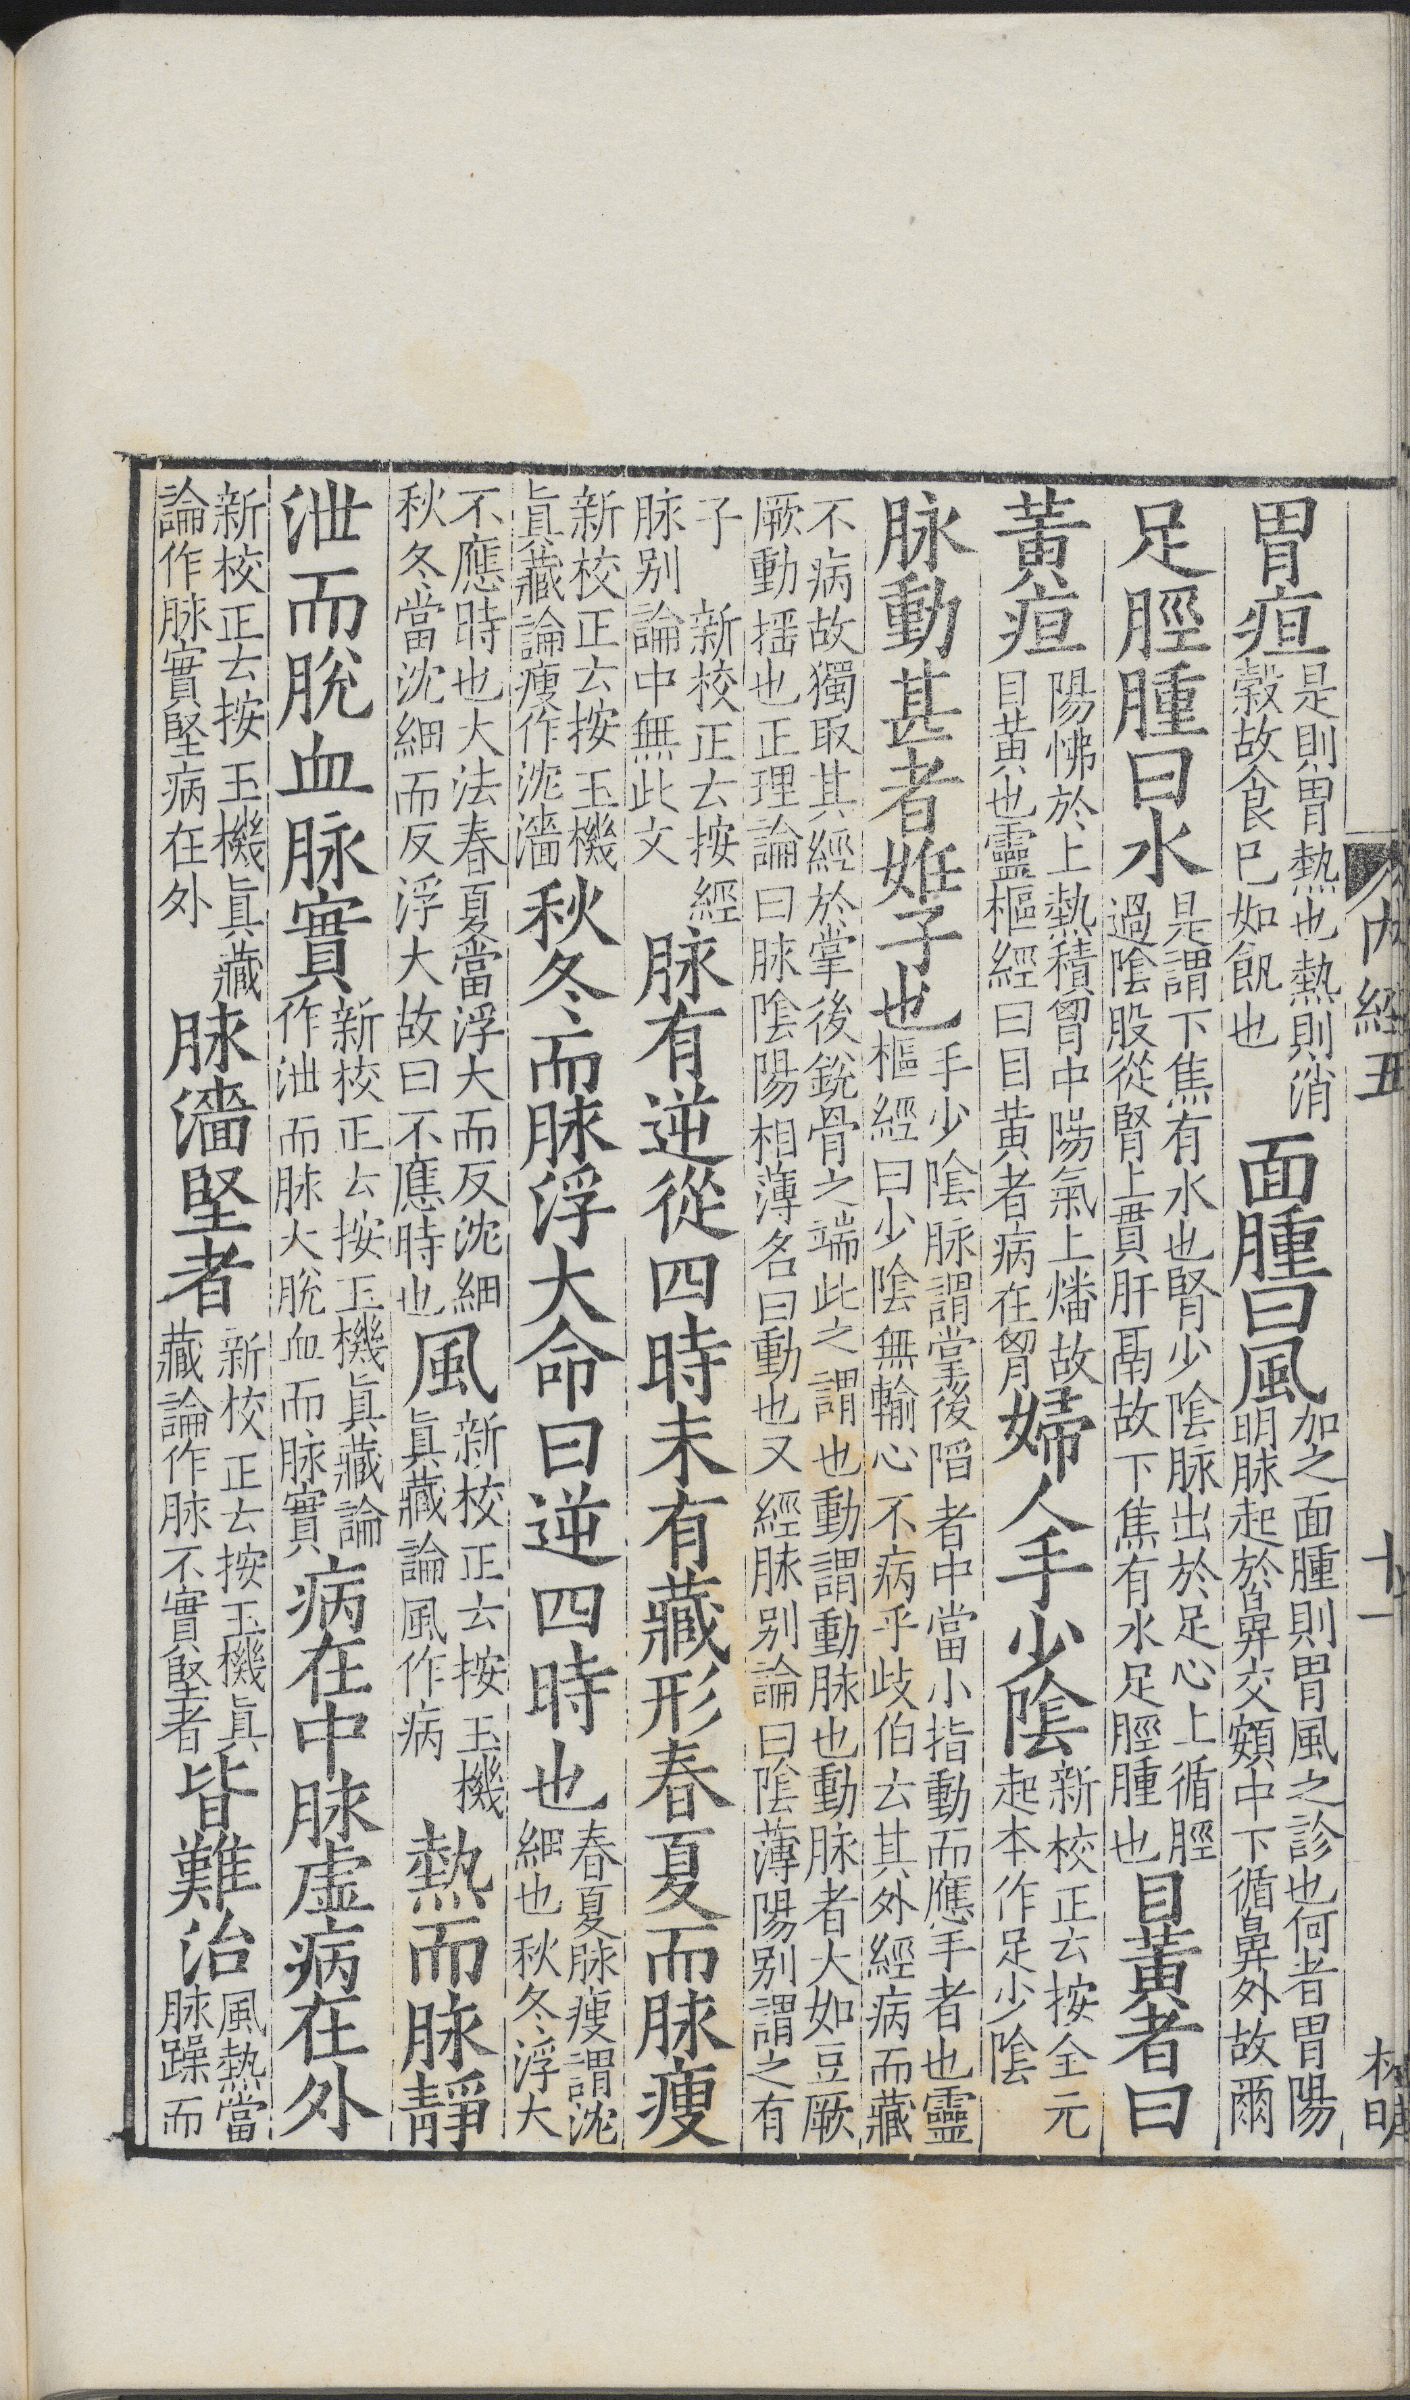 胃疸是則胃熱也熱則消穀故食已如飢也面腫曰風加之面腫則胃風之診也何者胃陽明脉起於鼻交頞中下循鼻外故爾
足脛腫曰水是謂下焦有水也腎少陰脉出於足心上循脛過陰股從腎上貫肝鬲故下焦有水足脛腫也目黃者曰
黃疸陽怫於上熱積胷中陽氣上燔故目黃也靈樞經曰目黃者病在胷婦人手少陰新校正云按全元起本作足少陰
脉動甚者姙子也手少陰脉謂掌後陷者中當小指動而應手者也靈樞經曰少陰無輸心不病乎歧伯云其外經病而藏
不病故獨取其經於掌後銳骨之端此之謂也動謂動脉也動脉者大如豆厥厥動揺也正理論曰脉陰陽相薄名曰動也又經脉别論曰陰薄陽别謂之有
子 新校正云按經脉别論中無此文脉有逆從四時未有藏形春夏而脉瘦
新校正云按玉機眞藏論瘦作沈濇秋冬而脉浮大命曰逆四時也春夏脉瘦謂沈細也秋冬浮大
不應時也大法春夏當浮大而反沈細秋冬當沈細而反浮大故曰不應時也風新校正云按玉機眞藏論風作病熱而脉靜
泄而脫血脉實新校正云按玉機眞藏論作泄而脉大脫血而脉實病在中脉虛病在外
新校正云按玉機眞藏論作脉實堅病在外脉濇堅者新校正云按玉機眞藏論作脉不實堅者皆難治風熱當脉躁而
内經五
十一